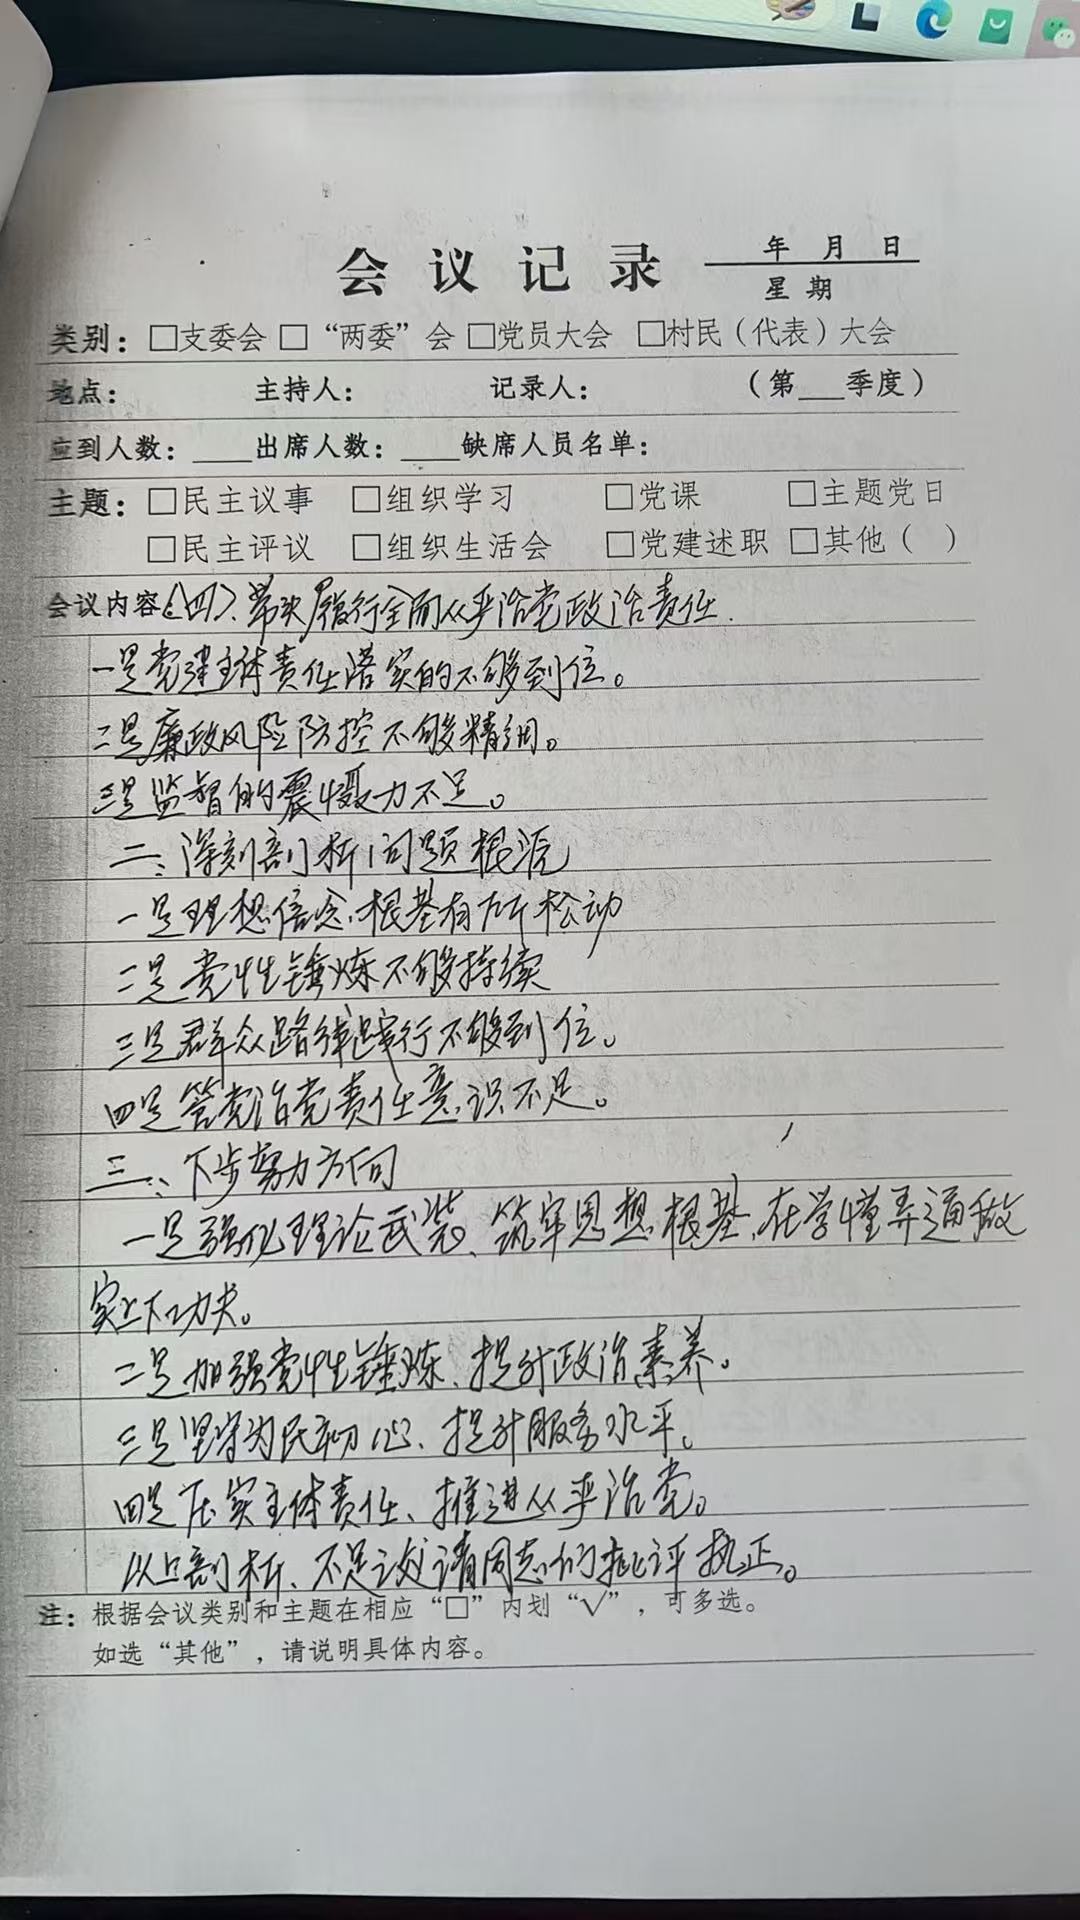 会议记录 年 月 日
星期
类别：□支委会 □“两委”会 □党员大会 □村民（代表）大会
地点： 主持人： 记录人： （第___季度）
应到人数：____出席人数：____缺席人员名单：
主题：□民主议事 □组织学习 □党课 □主题党日
□民主评议 □组织生活会 □党建述职 □其他（ ）
会议内容：（四）、带头履行全面从严治党政治责任.
一是党建主体责任落实的不够到位。
二是廉政风险防控不够精细。
三是监督的震慑力不足。
二、深刻剖析问题根源
一是理想信念、根基有所松动
二是党性锤炼不够持续
三是群众路线践行不够到位。
四是管党治党责任意识不足。
三、下步努力方向
一是强化理论武装、筑牢思想根基、在学懂弄通做
实上下功夫。
二是加强党性锤炼、提升政治素养。
三是坚守为民初心、提升服务水平。
四是压实主体责任、推进从严治党。
以上剖析、不足之处请同志们批评执正。
注：根据会议类别和主题在相应“□”内划“√”，可多选。
如选“其他”，请说明具体内容。